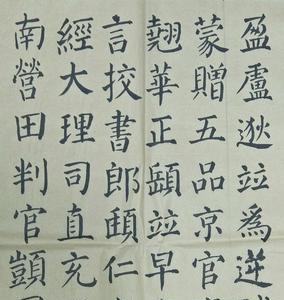 盈盧逖竝為逆
蒙贈五品京官
翹華正頤竝早
言挍書郎頲仁
經大理司直充
南營田判官顗